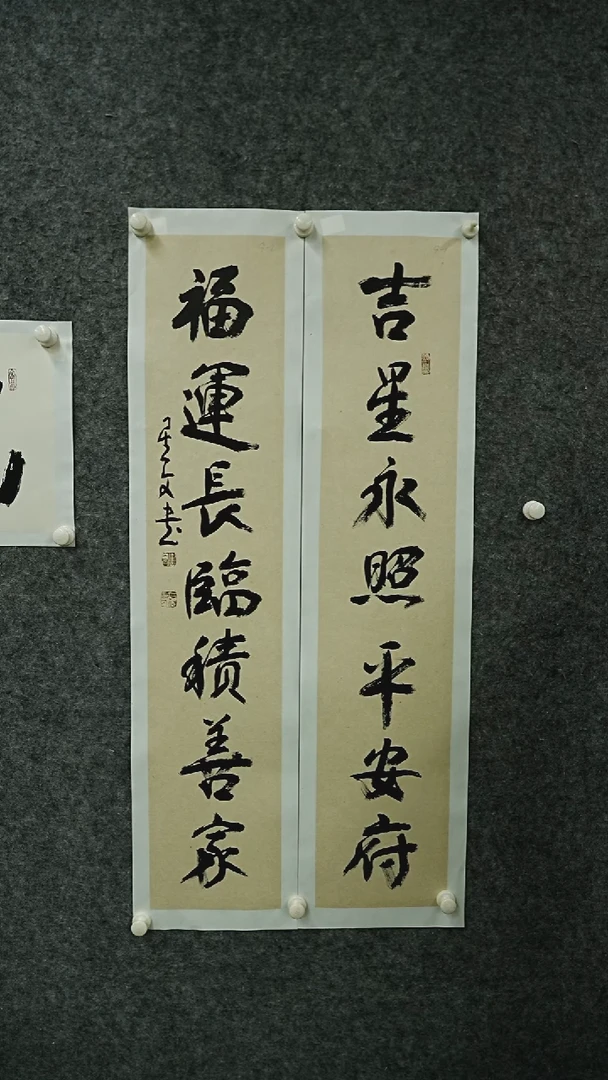 吉星永照平安府
福運長臨積善家
文書